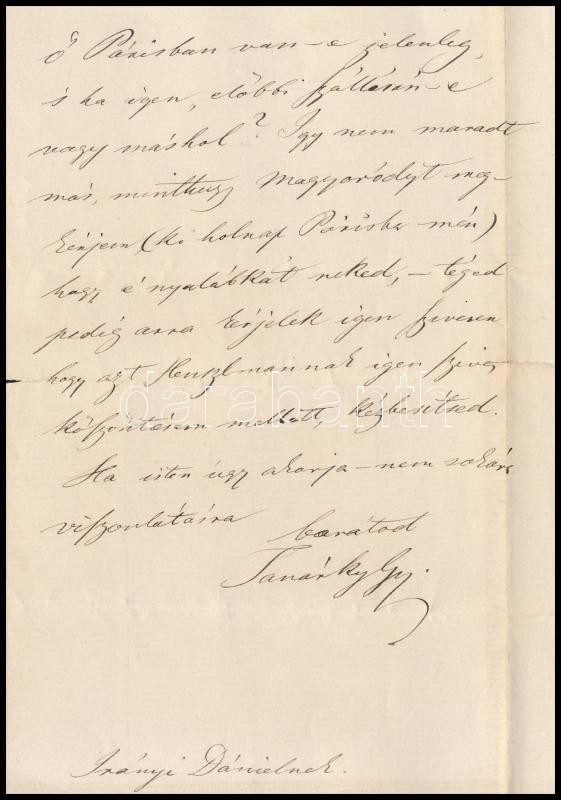 ő Párisban van-e jelenleg,
s ha igen, előbbi szállásán-e
vagy máshol? Igy nem maradt
más, minthogy Magyaródyt meg-
kérjem, (ki holnap Párisba mén)
hogy é nyalábkát neked, – téged
pedig arra kérjelek igen szivesen
hogy azt Henszlmannak igen szives
köszöntésem mellett, kézbesítsed.
Ha isten úgy akarja – nem sokára
viszontlátásra
barátod
Tanárky Gy.
Irányi Dánielnek.
darabanth